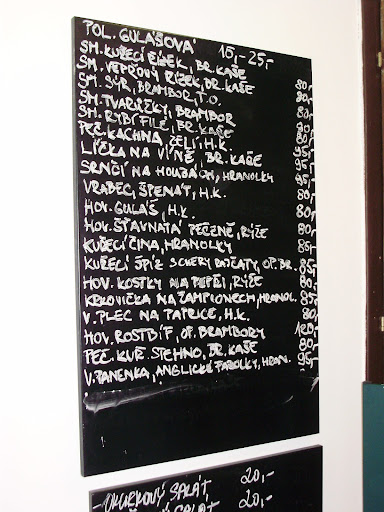 POL. GULÁŠOVÁ 15,-25,-
SM. KUŘECÍ ŘÍZEK, BR. KAŠE
SM. VEPŘOVÝ ŘÍZEK, BR. KAŠE 80,-
SM. SÝR, BRAMBOR, T.O. 80,-
SM. TVARŮŽKY, BRAMBOR 80,-
SM. RYBÍ FILÉ, BR. KAŠE 80,-
PEČ. KACHNA, ZELÍ, H.K. 95,-
LÍČKA NA VÍNĚ, BR. KAŠE 95,-
SRNČÍ NA HOUBÁCH, HRANOLKY 95,-
VRABEC, ŠPENÁT, H.K. 80,-
HOV. GULÁŠ, H.K. 80,-
HOV. ŠŤAVNATÁ PEČENĚ, RÝŽE 80,-
KUŘECÍ ČÍNA, HRANOLKY 85,-
KUŘECÍ ŠPÍZ SCHERY RAJČATY, OP. BR. 85,-
HOV. KOSTKY NA PEPŘI, RÝŽE 80,-
KRKOVIČKA NA ŽAMPIONECH, HRANOL. 85,-
V. PLEC NA PAPRICE, H.K. 80,-
HOV. ROSTBÍF, OP. BRAMBORY 120,-
PEČ. KUŘ. STEHNO, BR. KAŠE 80,-
V. PANENKA, ANGLICKÉ FAZOLKY, HRAN. 95,-
- OKURKOVÝ SALÁT 20,-
SALÁT 20,-